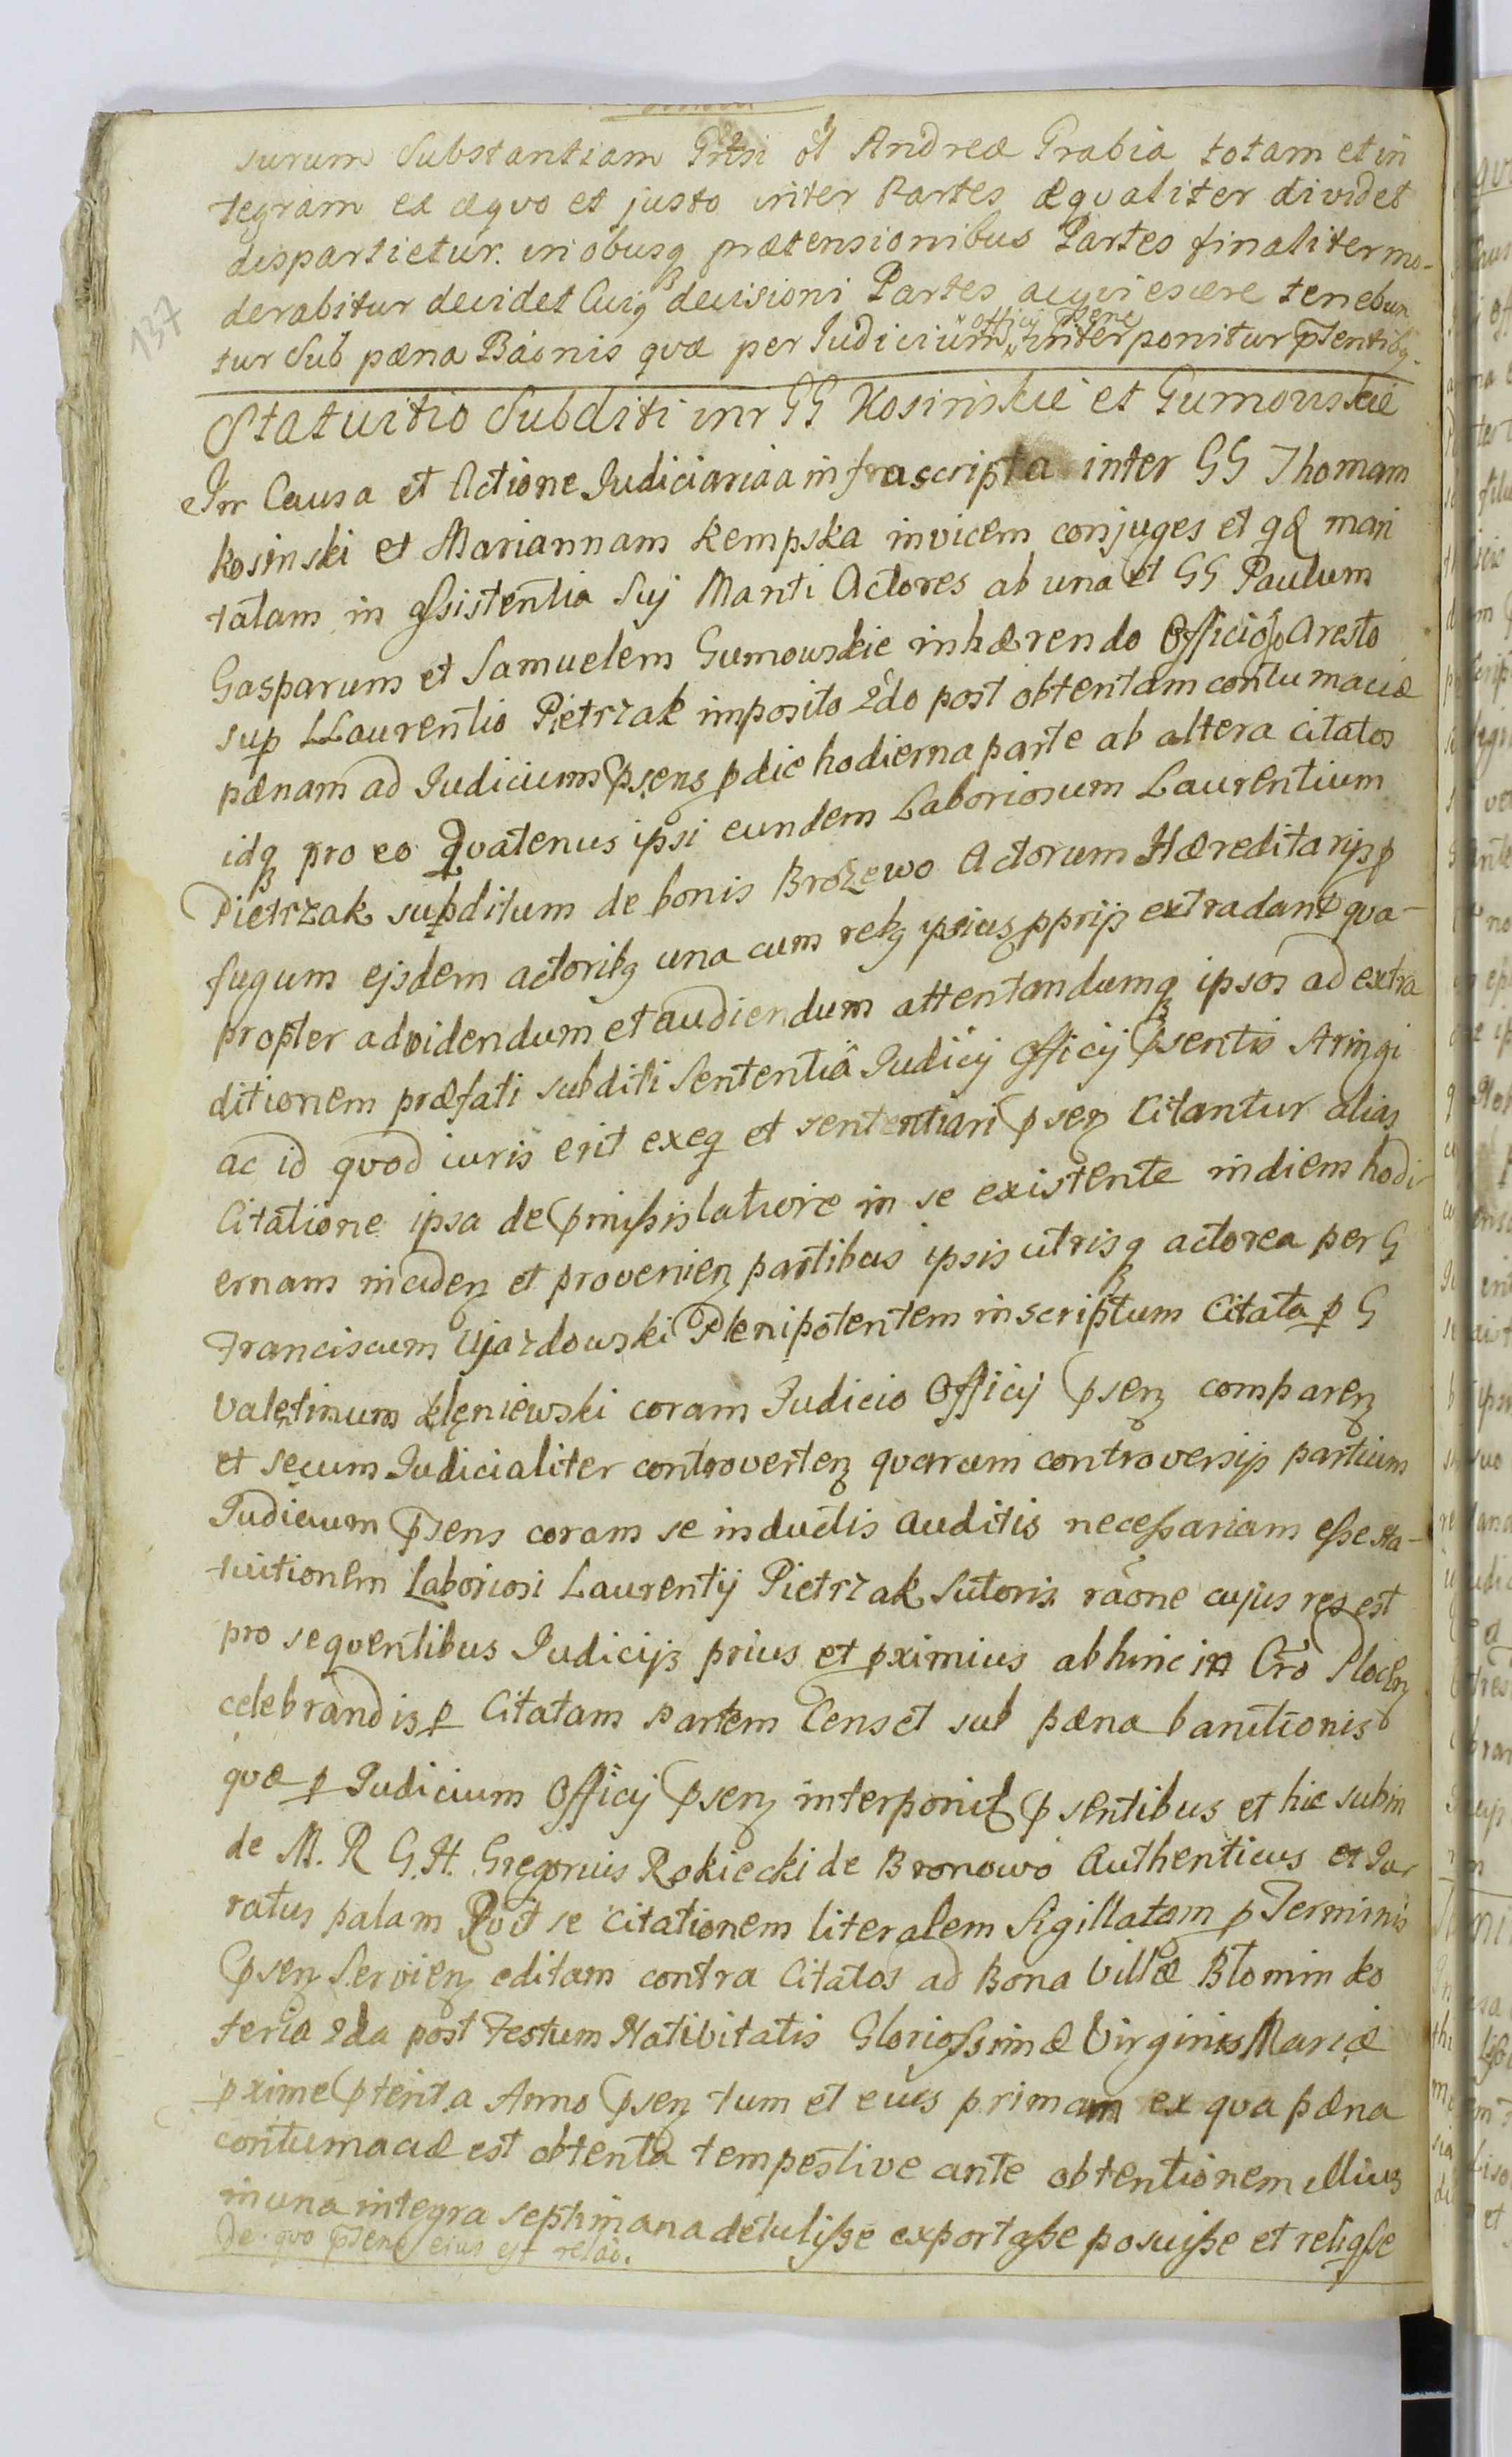 surum Substantiam Prtsi ol Andreæ Grabia totam et in
tegram ex æqvo et justo inter Partes æqvaliter dividet
dispartietur. in obusq prætensionibus Partes finaliter mo-
derabitur decidet Cuiq decisioni Partes acqviescere tenebun
officij psene
tur Sub pæna Baonis qvæ per Iudicium interponitur pstentibq.
137
Statuitio Subditi inr GG Kosinskie et Gumowskie
In Causa et Actione Iudiciaria a infrascripta inter GG Thomam
Kosinski et Mariannam Kempska invicem conjuges et qd mari
talam in assistentia Sui Mariti Actores ab una et GG Paulum
Gasparum et Samuelem Gumowskie inhærendo Officioso Aresto
sup LLaurentio Pietrzak imposito 2do post obtentam contumaciæ
pænam ad Iudicium psens p die hodierna parte ab altera citatos
idq pro eo Qvatenus ipsi eundem Laboriosum Laurentium
Pietrzak subditum de bonis Brożewo Actorum Hæreditarijs p
fugum ejsdem actoribq una cum rebq ipsius pprijs extradant qva-
propter ad videndum et audiendum attentandumq ipsos ad extra
ditionem præfati subditi Sententiâ Iudicij Officij psentis stringi
ac id qvod iuris erit exeq et sententiari psen Citantur alias
Citatione ipsa de pmissis latiore in se existente in diem hodi
ernam inciden et provenien partibus ipsis utrisq actorea per G
Franciscum Ujazdowski Plenipotentem inscriptum Citata p G
Valentinum Kleniewski coram Iudicio Officij psen comparen
et secum Iudicialiter controverten qvarum controversijs partium
Iudicium psens coram se inductis auditis necessariam esse sta-
tuitionem Laboriosi Laurentij Pietrzak Sutoris raone cujus res est
pro seqventibus Iudicijs prius et pximius abhinc in Cro Plocen
celebrandis p Citatam partem Censet sub pæna banitionis
qvæ p Iudicium Officij psen interponit psentibus et hic subin
de M. R G. H. Gregorius Rokiecki de Bronowo Authenticus et Iu
ratus palam Rvit se citationem literalem Sigillatam p Terminis
psen Servien editam contra Citatos ad Bona Villæ Blomin ko
feria 2da post Festum Nativitatis Gloriossimæ Virginis Mariæ
pxime pterita Anno psen tum et eius primam ex qva pæna
contumaciæ est obtenta tempestive ante obtentionem illius
in una integra septimana detulisse exportasse posuisse et reliqsse
De qvo psene eius est relao.